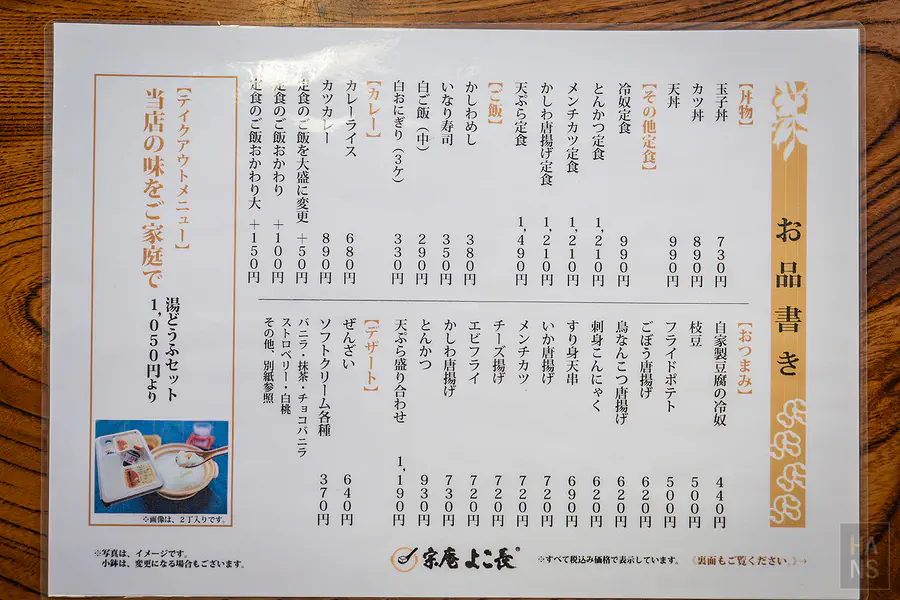 お品書き
【丼物】
玉子丼 730円
カツ丼 890円
天丼 990円
【その他定食】
冷奴定食 990円
とんかつ定食 1,210円
メンチカツ定食 1,210円
かしわ唐揚げ定食 1,210円
天ぷら定食 1,490円
【ご飯】
かしわめし 380円
いなり寿司 350円
白ご飯(中) 290円
白おにぎり(3ケ) 330円
【カレー】
カレーライス 680円
カツカレー 890円
定食のご飯を大盛に変更 +50円
定食のご飯おかわり +100円
定食のご飯おかわり大 +150円
【おつまみ】
自家製豆腐の冷奴 440円
枝豆 500円
フライドポテト 500円
ごぼう唐揚げ 620円
鳥なんこつ唐揚げ 620円
刺身こんにゃく 620円
すり身天串 690円
いか唐揚げ 720円
メンチカツ 720円
チーズ揚げ 720円
エビフライ 720円
かしわ唐揚げ 730円
とんかつ 930円
天ぷら盛り合わせ 1,190円
【デザート】
ぜんざい 640円
ソフトクリーム各種 370円
バニラ・抹茶・チョコバニラ
ストロベリー・白桃
その他、別紙参照
【テイクアウトメニュー】
当店の味をご家庭で
湯どうふセット
1,050円より
※画像は、2丁入りです。
※写真は、イメージです。
小鉢は、変更になる場合もございます。
宗庵 よこ長
※すべて税込み価格で表示しています。
《裏面もご覧ください。》→
HANS